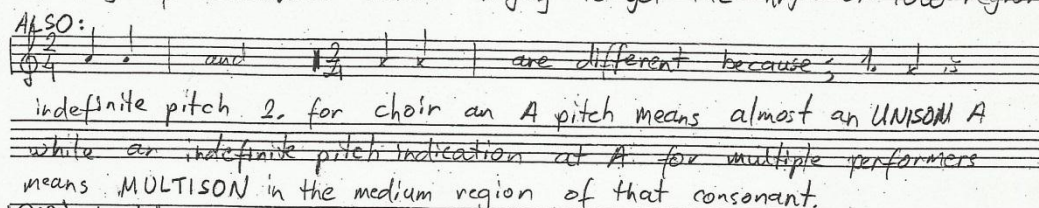 ALSO:
2/4 and 2/4 are different because; 1. is
indefinite pitch 2. for choir an A pitch means almost an UNISON A
while an indefinite pitch indication at A for multiple performers
means MULTISON in the medium region of that consonant.